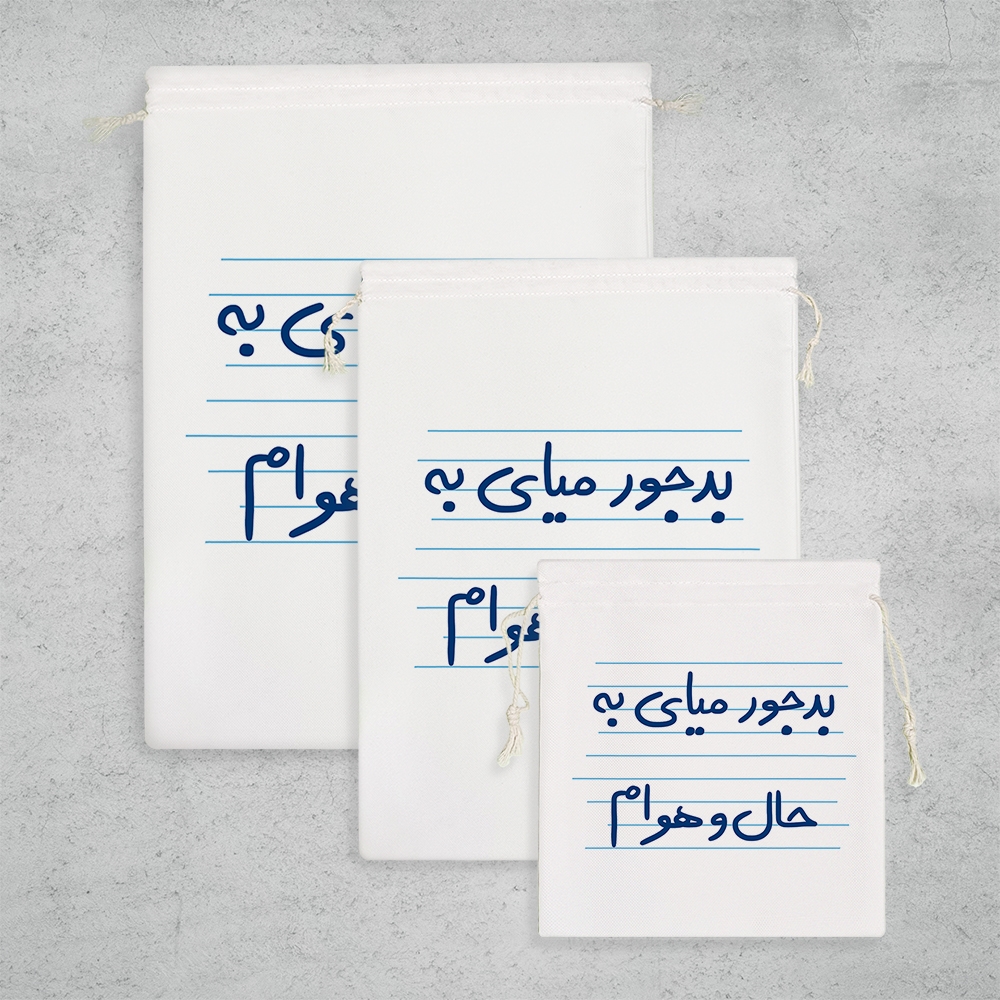 ی به
هوام
بدجور میای به
هوام
بدجور میای به
حال و هوام